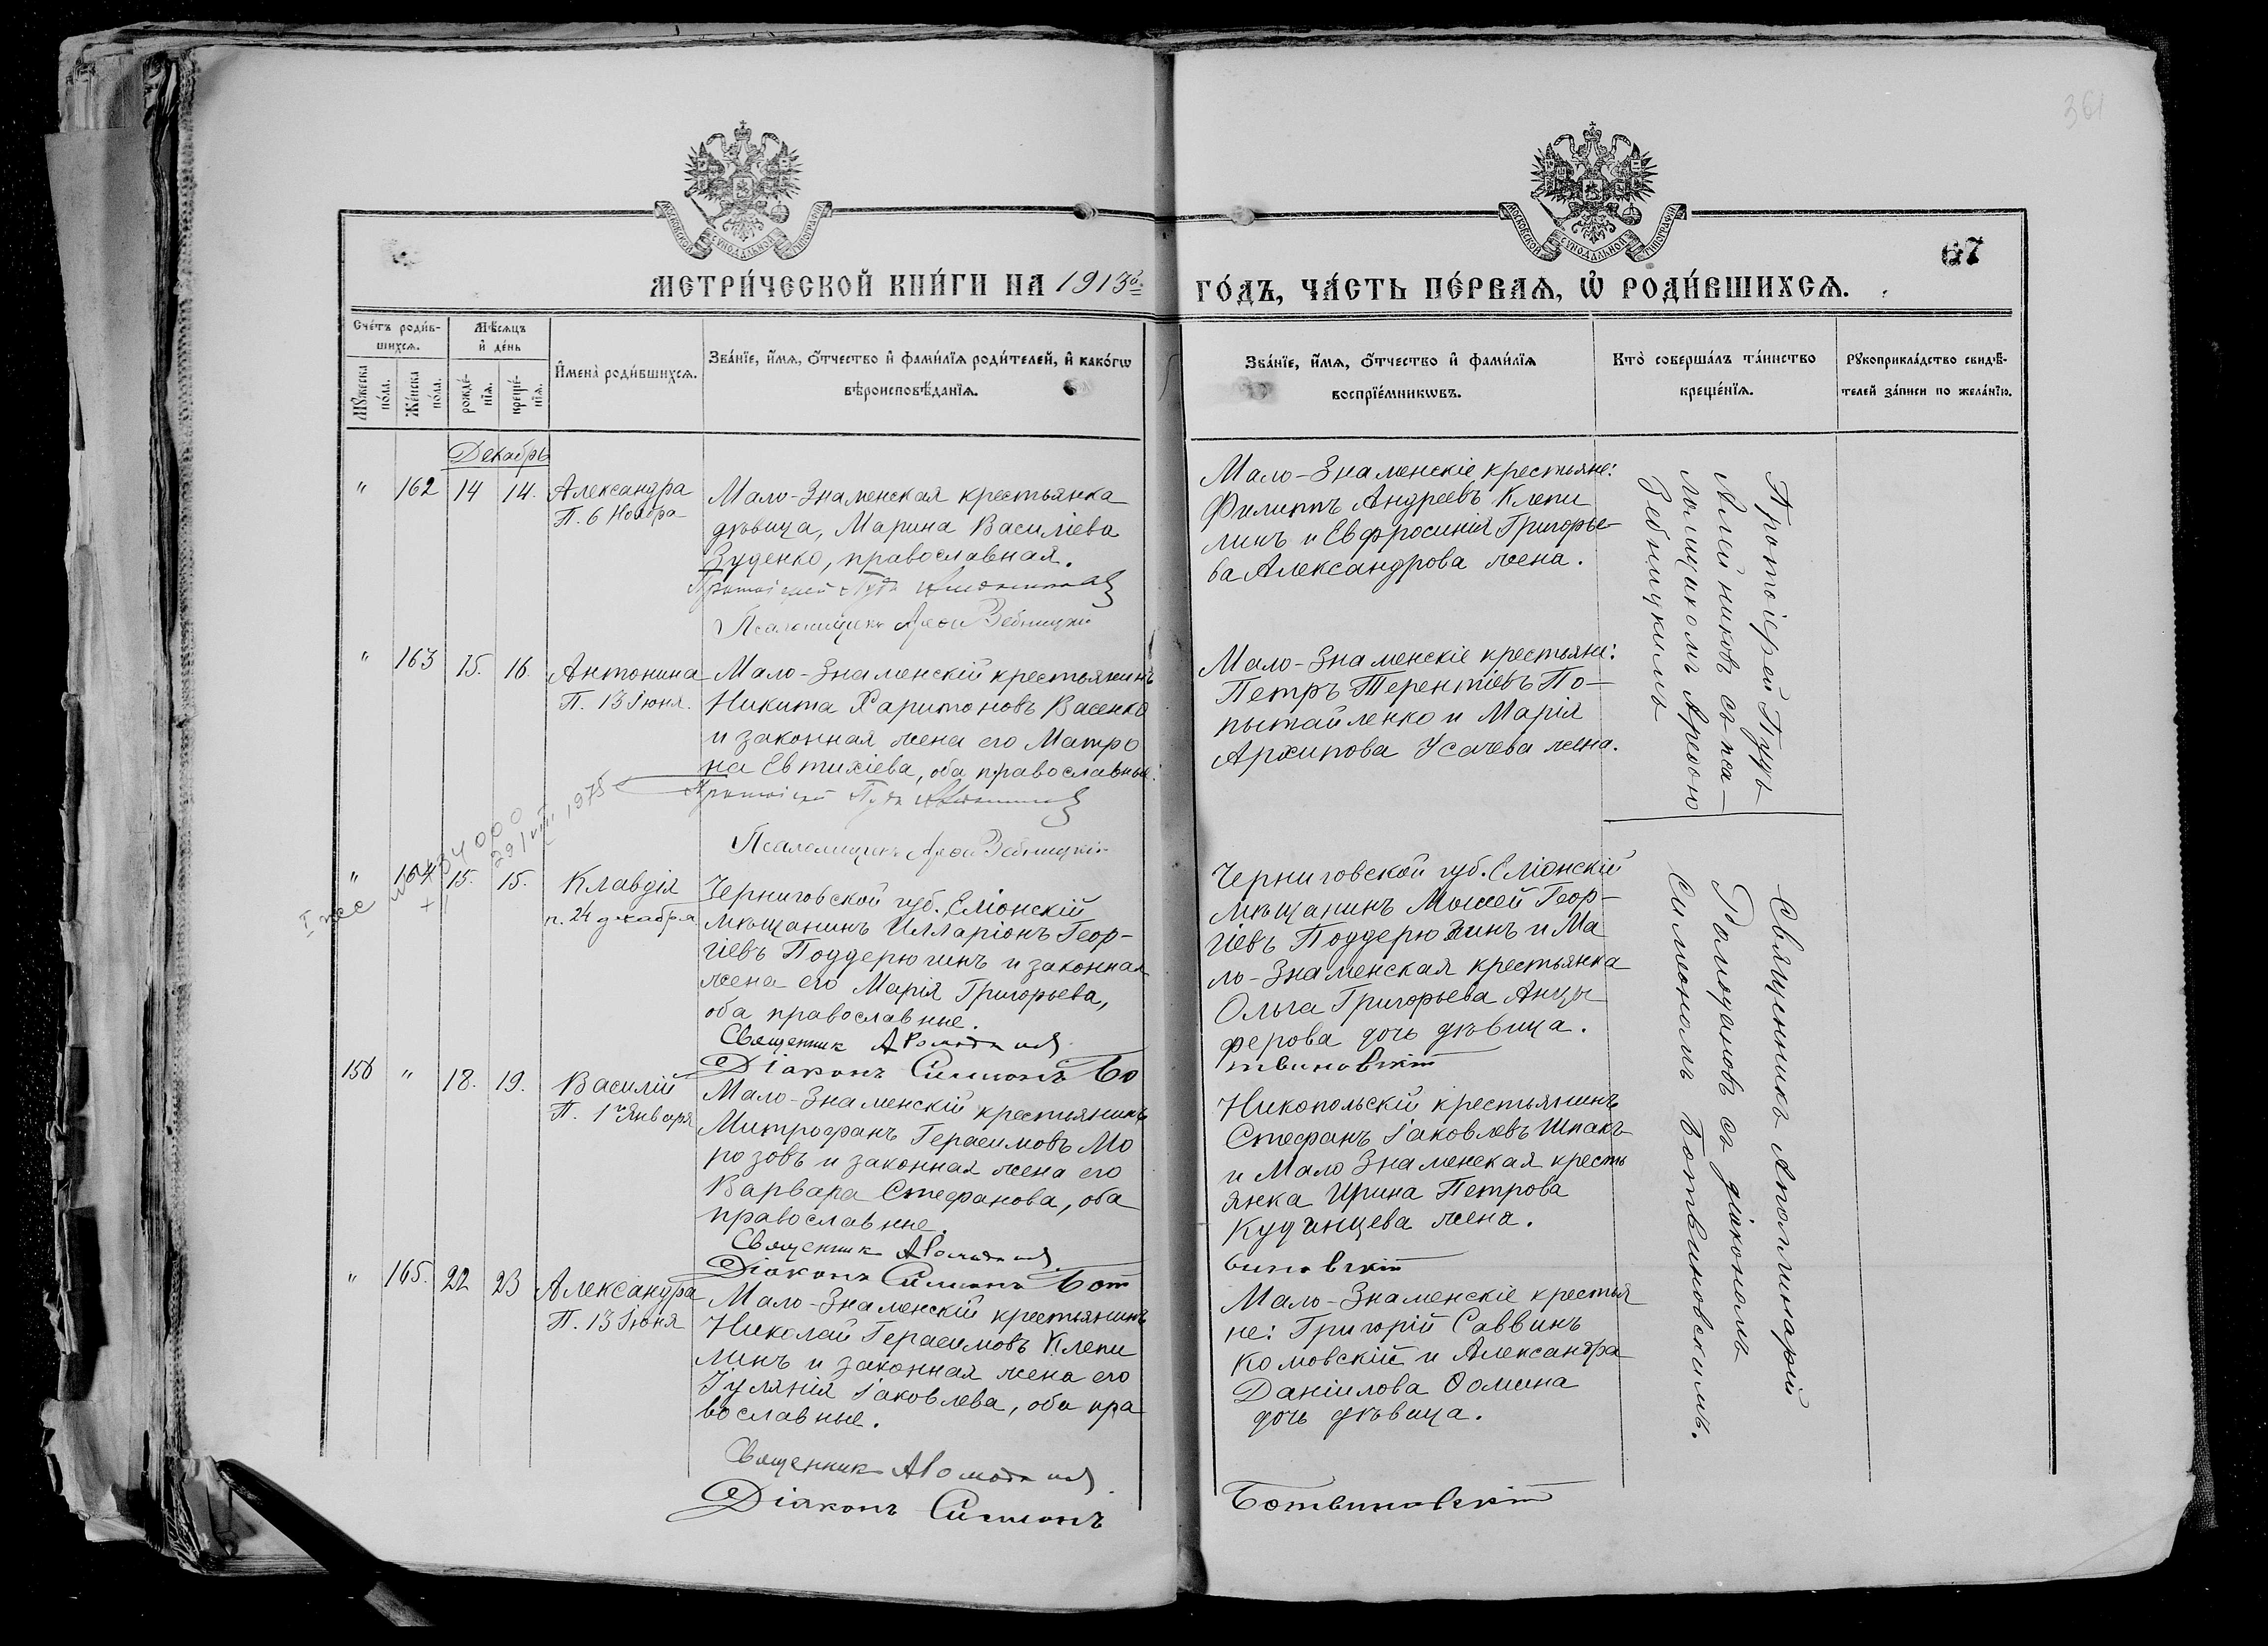 361
МОСКОВСКОЙ СУНОДАЛЬНОЙ ТИПОГРАФІИ
МОСКОВСКОЙ СУНОДАЛЬНОЙ ТИПОГРАФІИ
67
МЕТРИ́ЧЕСКОЙ КНИ́ГИ НА 1913й
ГО́ДЪ, ЧА́СТЬ ПЕ́РВАѦ, Ѡ РОДИ́ВШИХСѦ.
Сче́тъ роди́в-
шихсѧ.
Мꙋ́жеска по́ла.
Же́нска по́ла.
Мѣ́сѧцъ
и де́нь
рожде́-
нїѧ.
креще́-
нїѧ.
Имена̀ роди́вшихсѧ.
Зва́нїе, и́мѧ, ѻ́тчество и фами́лїѧ роди́телей, и како́гѡ
вѣроисповѣ́данїѧ.
Зва́нїе, и́мѧ, ѻ́тчество и фами́лїѧ
воспрїе́мникѡвъ.
Кто̀ соверша́лъ та́инство
креще́нїѧ.
Рꙋкоприкла́дство свидѣ́-
телей за́писи по жела́нїю.
Декабрь
" 162 14 14.
Александра
П. 6 Ноября
Мало-Знаменская крестьянка
дѣвица, Марина Василіева
Зуденко, православная.
Протоіерей Гудъ Алейниковъ
Псаломщикъ Арѳ. Зебницкій
Мало-Знаменскіе крестьяне:
Филиппъ Андреевъ Клепи
линъ и Евфросинія Григорье-
ва Александрова жена.
Протоіерей Гудъ
Алейниковъ съ пса-
ломщикомъ Арѳою
Зебницкимъ
" 163 15. 16.
Антонина
П. 13 Іюня.
Мало-Знаменскій крестьянинъ
Никита Харитоновъ Васенко
и законная жена его Матро
на Евтихіева, оба православные.
Протоіерей Гудъ Алейниковъ
Псаломщикъ Арѳ. Зебницкій
Мало-Знаменскіе крестьяне:
Петръ Терентіевъ По-
пытайленко и Марія
Архипова Усачева жена.
29/VIII 1975
" 164 15. 15.
Клавдія
п. 24 декабря
Черниговской губ. Еліонскій
мѣщанинъ Илларіонъ Геор-
гіевъ Поддерюгинъ и законная
жена его Марія Григорьева,
оба православные.
Священник А Ромоданов
Діаконъ Симеонъ Бо
твиновскій
Черниговской губ. Еліонскій
мѣщанинъ Моисей Геор-
гіевъ Поддерюгинъ и Ма
ло-Знаменская крестьянка
Ольга Григорьева Анцы
ферова дочь дѣвица.
Священникъ Аполлинарій
Ромодановъ съ діакономъ
Симеономъ Ботвиновскимъ.
156 " 18. 19.
Василій
П. 1 Января
Мало-Знаменскій крестьянинъ
Митрофанъ Герасимовъ Мо
розовъ и законная жена его
Варвара Стефанова, оба
православные.
Священник А Ромоданов
Діаконъ Симеонъ Бот
виновскій
Никопольскій крестьянинъ
Стефанъ Іаковлевъ Шпакъ
и Мало Знаменская кресть
янка Ирина Петрова
Кудинцева жена.
" 165. 22 23
Александра
П. 13 Іюня
Мало-Знаменскій крестьянинъ
Николай Герасимовъ Клепи
линъ и законная жена его
Іуліанія Іаковлева, оба пра
вославные.
Священник А Ромоданов
Діаконъ Симеонъ
Ботвиновскій
Мало-Знаменскіе крестья
не: Григорій Саввинъ
Комовскій и Александра
Даніилова Ѳомина
дочь дѣвица.